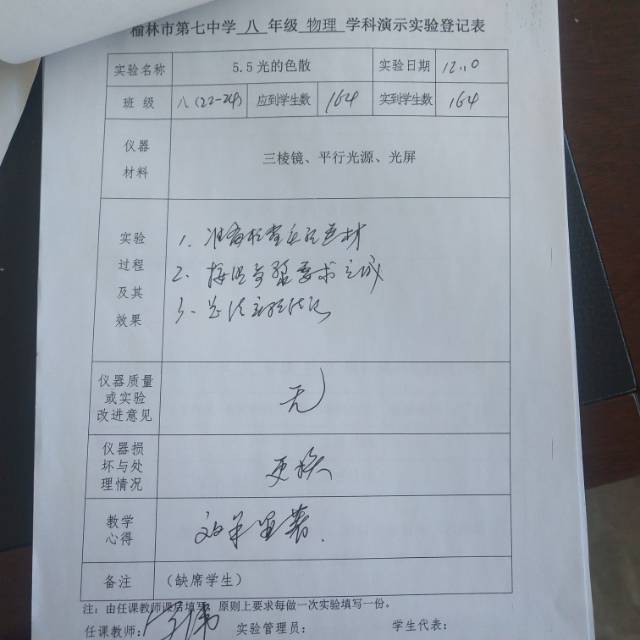 榆林市第七中学 八 年级 物理 学科演示实验登记表
实验名称 5.5光的色散 实验日期 12.10
班 级 八(22-24) 应到学生数 164 实到学生数 164
仪器材料 三棱镜、平行光源、光屏
实验过程及其效果
1. 准备检查
2. 按照 要求完成
3. 总结实验结论
仪器质量或实验改进意见 无
仪器损坏与处理情况 更换
教学心得 效果显著.
备注 (缺席学生)
注:由任课教师课后填写,原则上要求每做一次实验填写一份。
任课教师: 实验管理员: 学生代表: